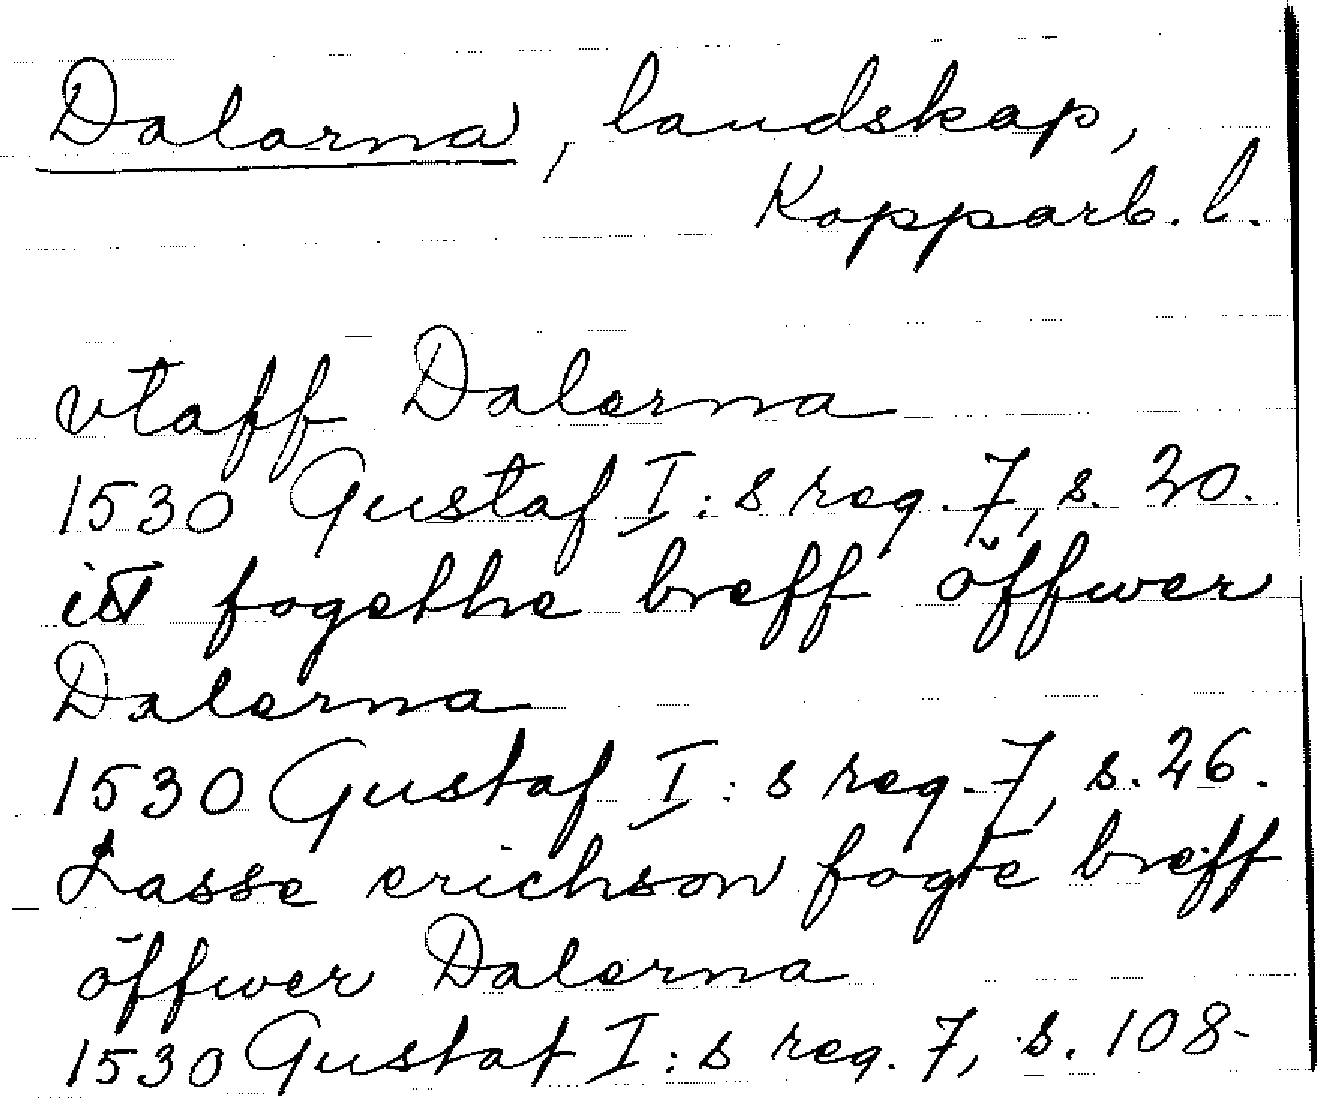 Dalarna, landskap,
Kopparb. l.
vtaff Dalerna
1530 Gustaf I:s reg. 7, s. 20.
itt fogethe breff öffwer
Dalerna
1530 Gustaf I:s reg. 7, s. 26.
Lasse erichson fogte breff
öffwer Dalerna
1530 Gustaf I:s reg. 7, s. 108.